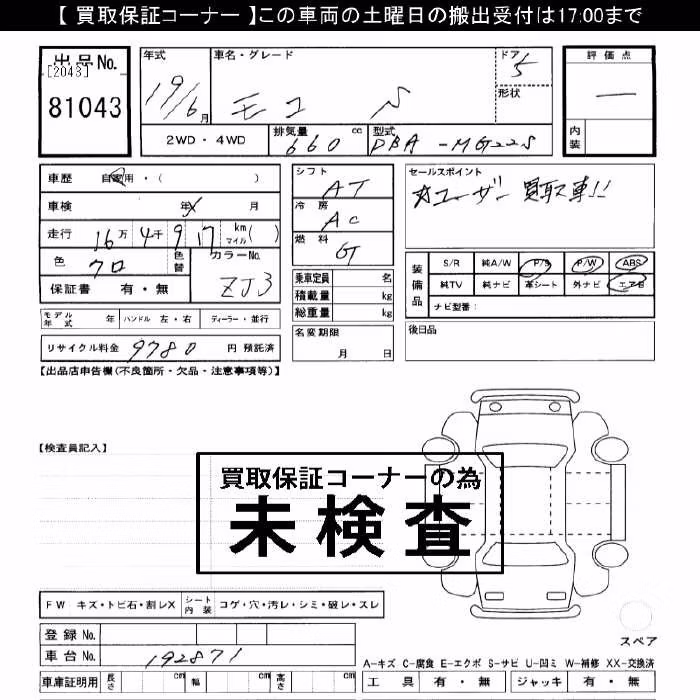 【 買取保証コーナー 】この車両の土曜日の搬出受付は17:00まで
出品No.
[2043]
81043
年式 車名・グレード ドア 5
19/6月 モコ S 形状
2WD・4WD 排気量 660 cc 型式 DBA-MG22S
評価点
—
内装
車歴 自家用・( )
車検 年 月
走行 16万4千917 km( ) マイル
色 クロ 色替 カラーNo. ZJ3
保証書 有・無
シフト AT
冷房 AC
燃料 G
乗車定員 名
積載量 kg
総重量 kg
セールスポイント
ユーザー買取車!!
装備品 S/R 純A/W P/S P/W ABS
純TV 純ナビ 革シート 外ナビ エアB
ナビ型番:
モデル年式 年 ハンドル 左・右 ディーラー・並行
名変期限 月 日
後日品
リサイクル料金 9780 円 預託済
【出品店申告欄(不良箇所・欠品・注意事項等)】
【検査員記入】
買取保証コーナーの為
未検査
FW キズ・トビ石・割レX シート内装 コゲ・穴・汚レ・シミ・破レ・スレ
登録No.
車台No. 192871
スペア
A-キズ C-腐食 E-エクボ S-サビ U-凹ミ W-補修 XX-交換済
車庫証明用 長さ cm 幅 cm 高さ cm 工具 有・無 ジャッキ 有・無